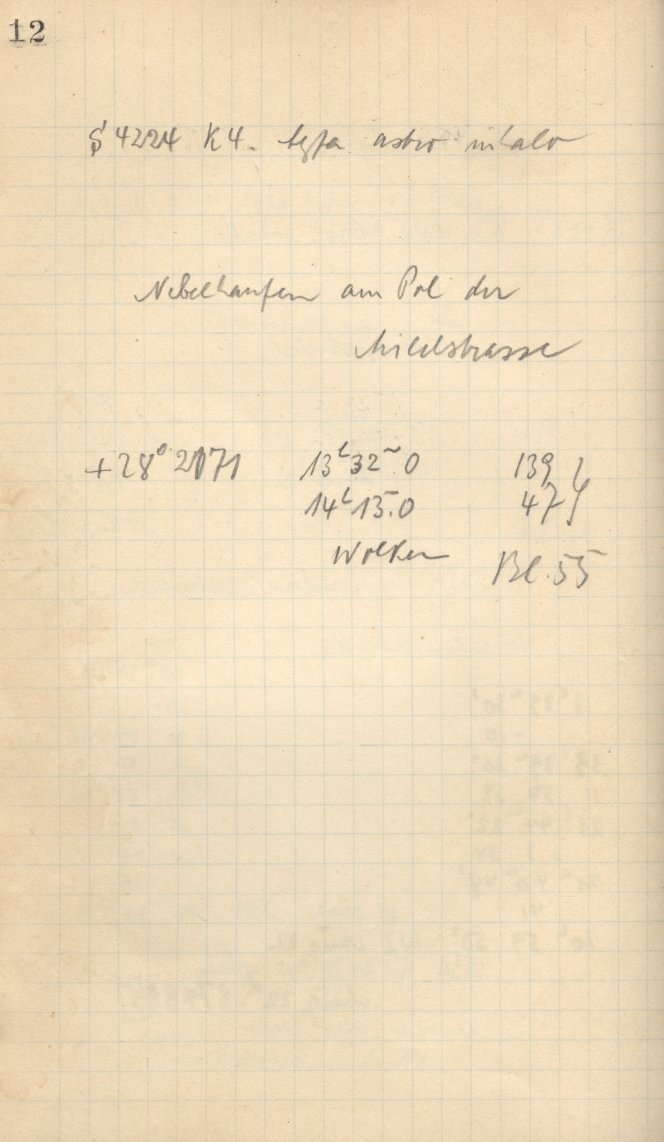 12
4224 K4. Agfa astro
Nebelhaufen am Pol der
Milchstrasse
+28° 2171 13ʰ32ᵐ.0 139
14ʰ15.0 47
Wolken Bl. 55